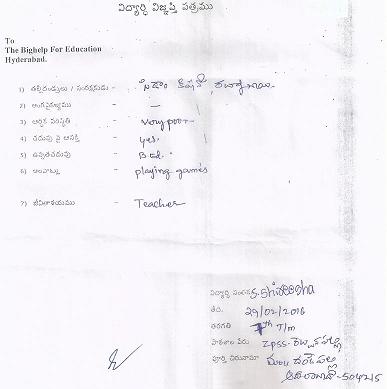 విద్యార్థి విజ్ఞప్తి పత్రము
To
The Bighelp For Education
Hyderabad.
1) తల్లిదండ్రులు / సంరక్షకుడు -
2) అంగవైకల్యము - —
3) ఆర్థిక పరిస్థితి - very poor
4) చదువు పై ఆసక్తి - yes.
5) ఉన్నతచదువు - B.ed.
6) అలవాట్లు - playing games
7) జీవితాశయము - Teacher
విద్యార్థి సంతకం S. Shireesha
తేది. 29/02/2016
తరగతి 7th T/m
పాఠశాల పేరు ZPSS-
పూర్తి చిరునామా మం॥ దండేపల్లి
ఆదిలాబాద్-504215